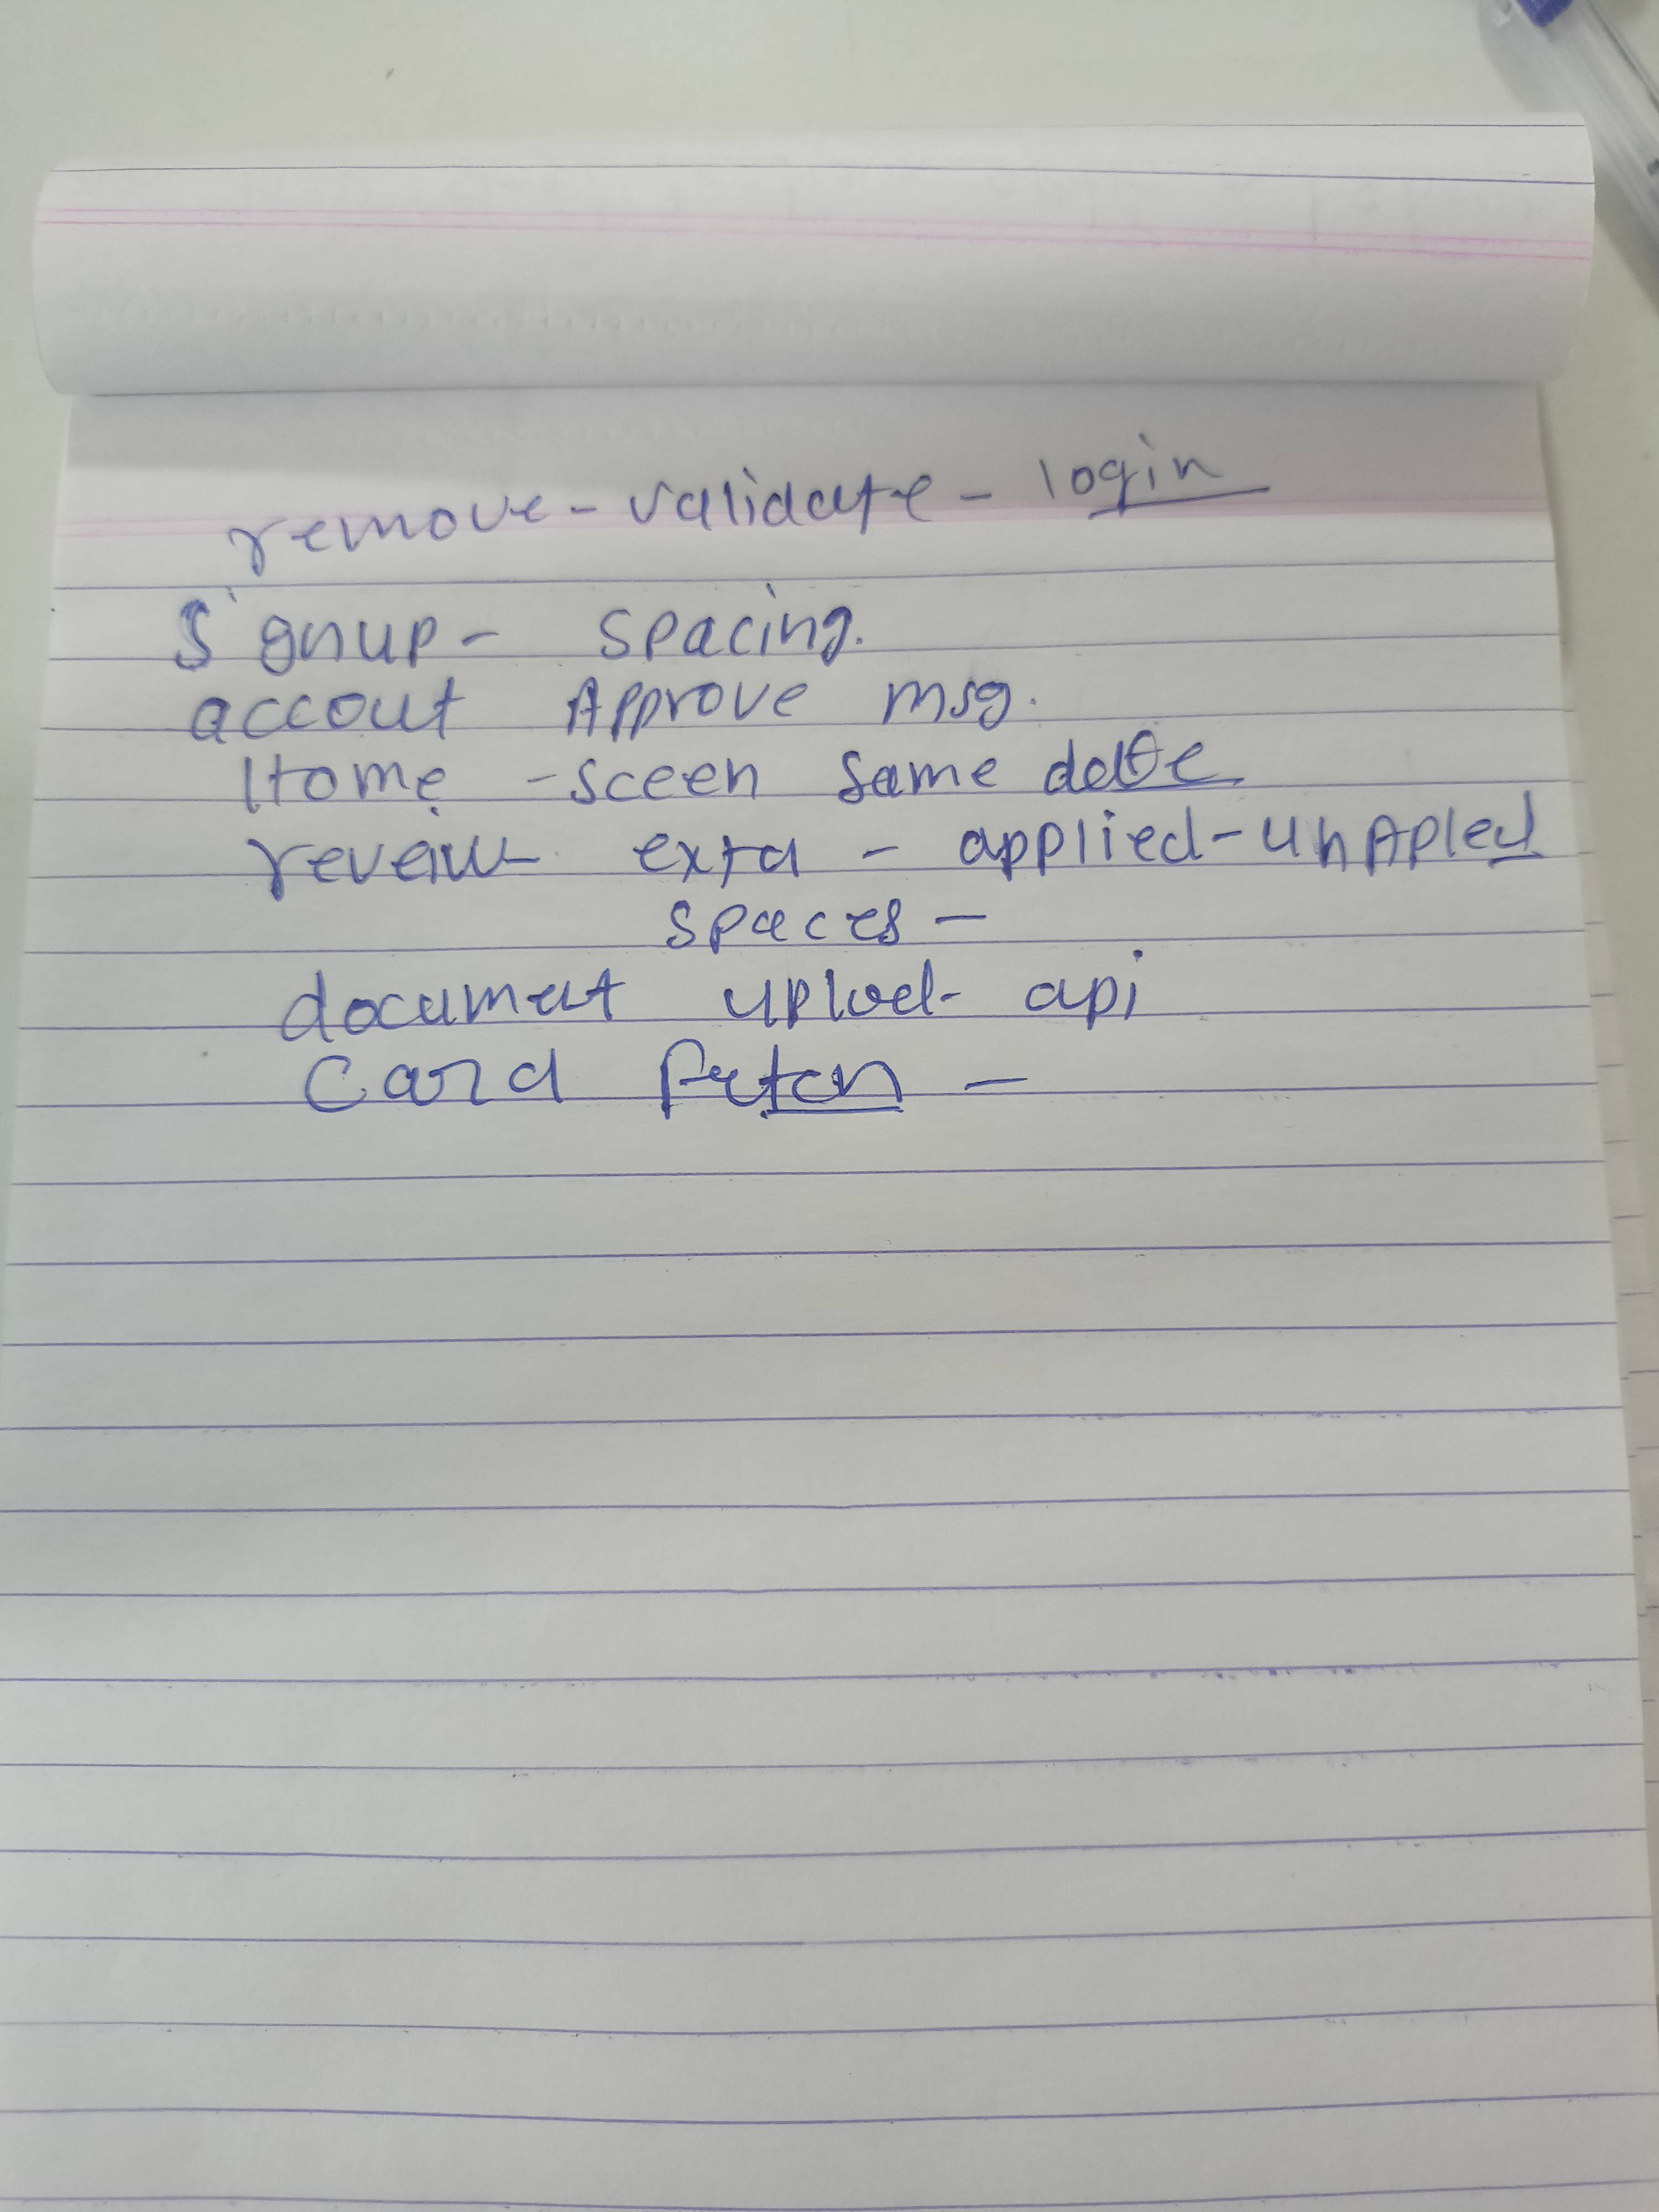 remove - validate - login
Signup - spacing.
accout Approve msg.
Home - sceen same date
reveiw exta - applied - unApled
spaces -
document uplod - api
Card fetch -